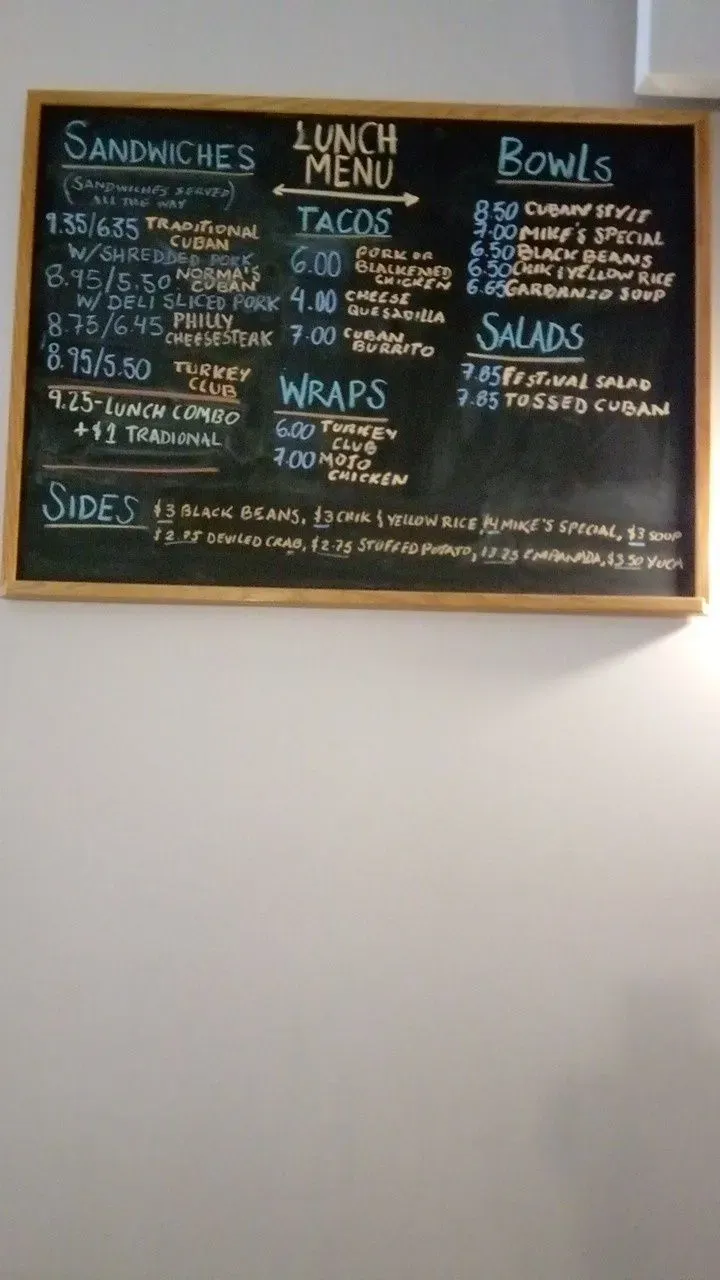 LUNCH
MENU
SANDWICHES
(SANDWICHES SERVED
ALL THE WAY)
9.35/6.35 TRADITIONAL
CUBAN
W/SHREDDED PORK
8.95/5.50 NORMA'S
CUBAN
W/ DELI SLICED PORK
8.75/6.45 PHILLY
CHEESESTEAK
8.95/5.50 TURKEY
CLUB
9.25-LUNCH COMBO
+$1 TRADIONAL
TACOS
6.00 PORK OR
BLACKENED
CHICKEN
4.00 CHEESE
QUESADILLA
7.00 CUBAN
BURRITO
WRAPS
6.00 TURKEY
CLUB
7.00 MOJO
CHICKEN
BOWLS
8.50 CUBAN STYLE
7.00 MIKE'S SPECIAL
6.50 BLACK BEANS
6.50 CHIK & YELLOW RICE
6.65 GARBANZO SOUP
SALADS
7.85 FESTIVAL SALAD
7.85 TOSSED CUBAN
SIDES $3 BLACK BEANS, $3 CHIK & YELLOW RICE $4 MIKE'S SPECIAL, $3 SOUP
$2.75 DEVILED CRAB, $2.75 STUFFED POTATO, EMPANADA, $3.50 YUCA